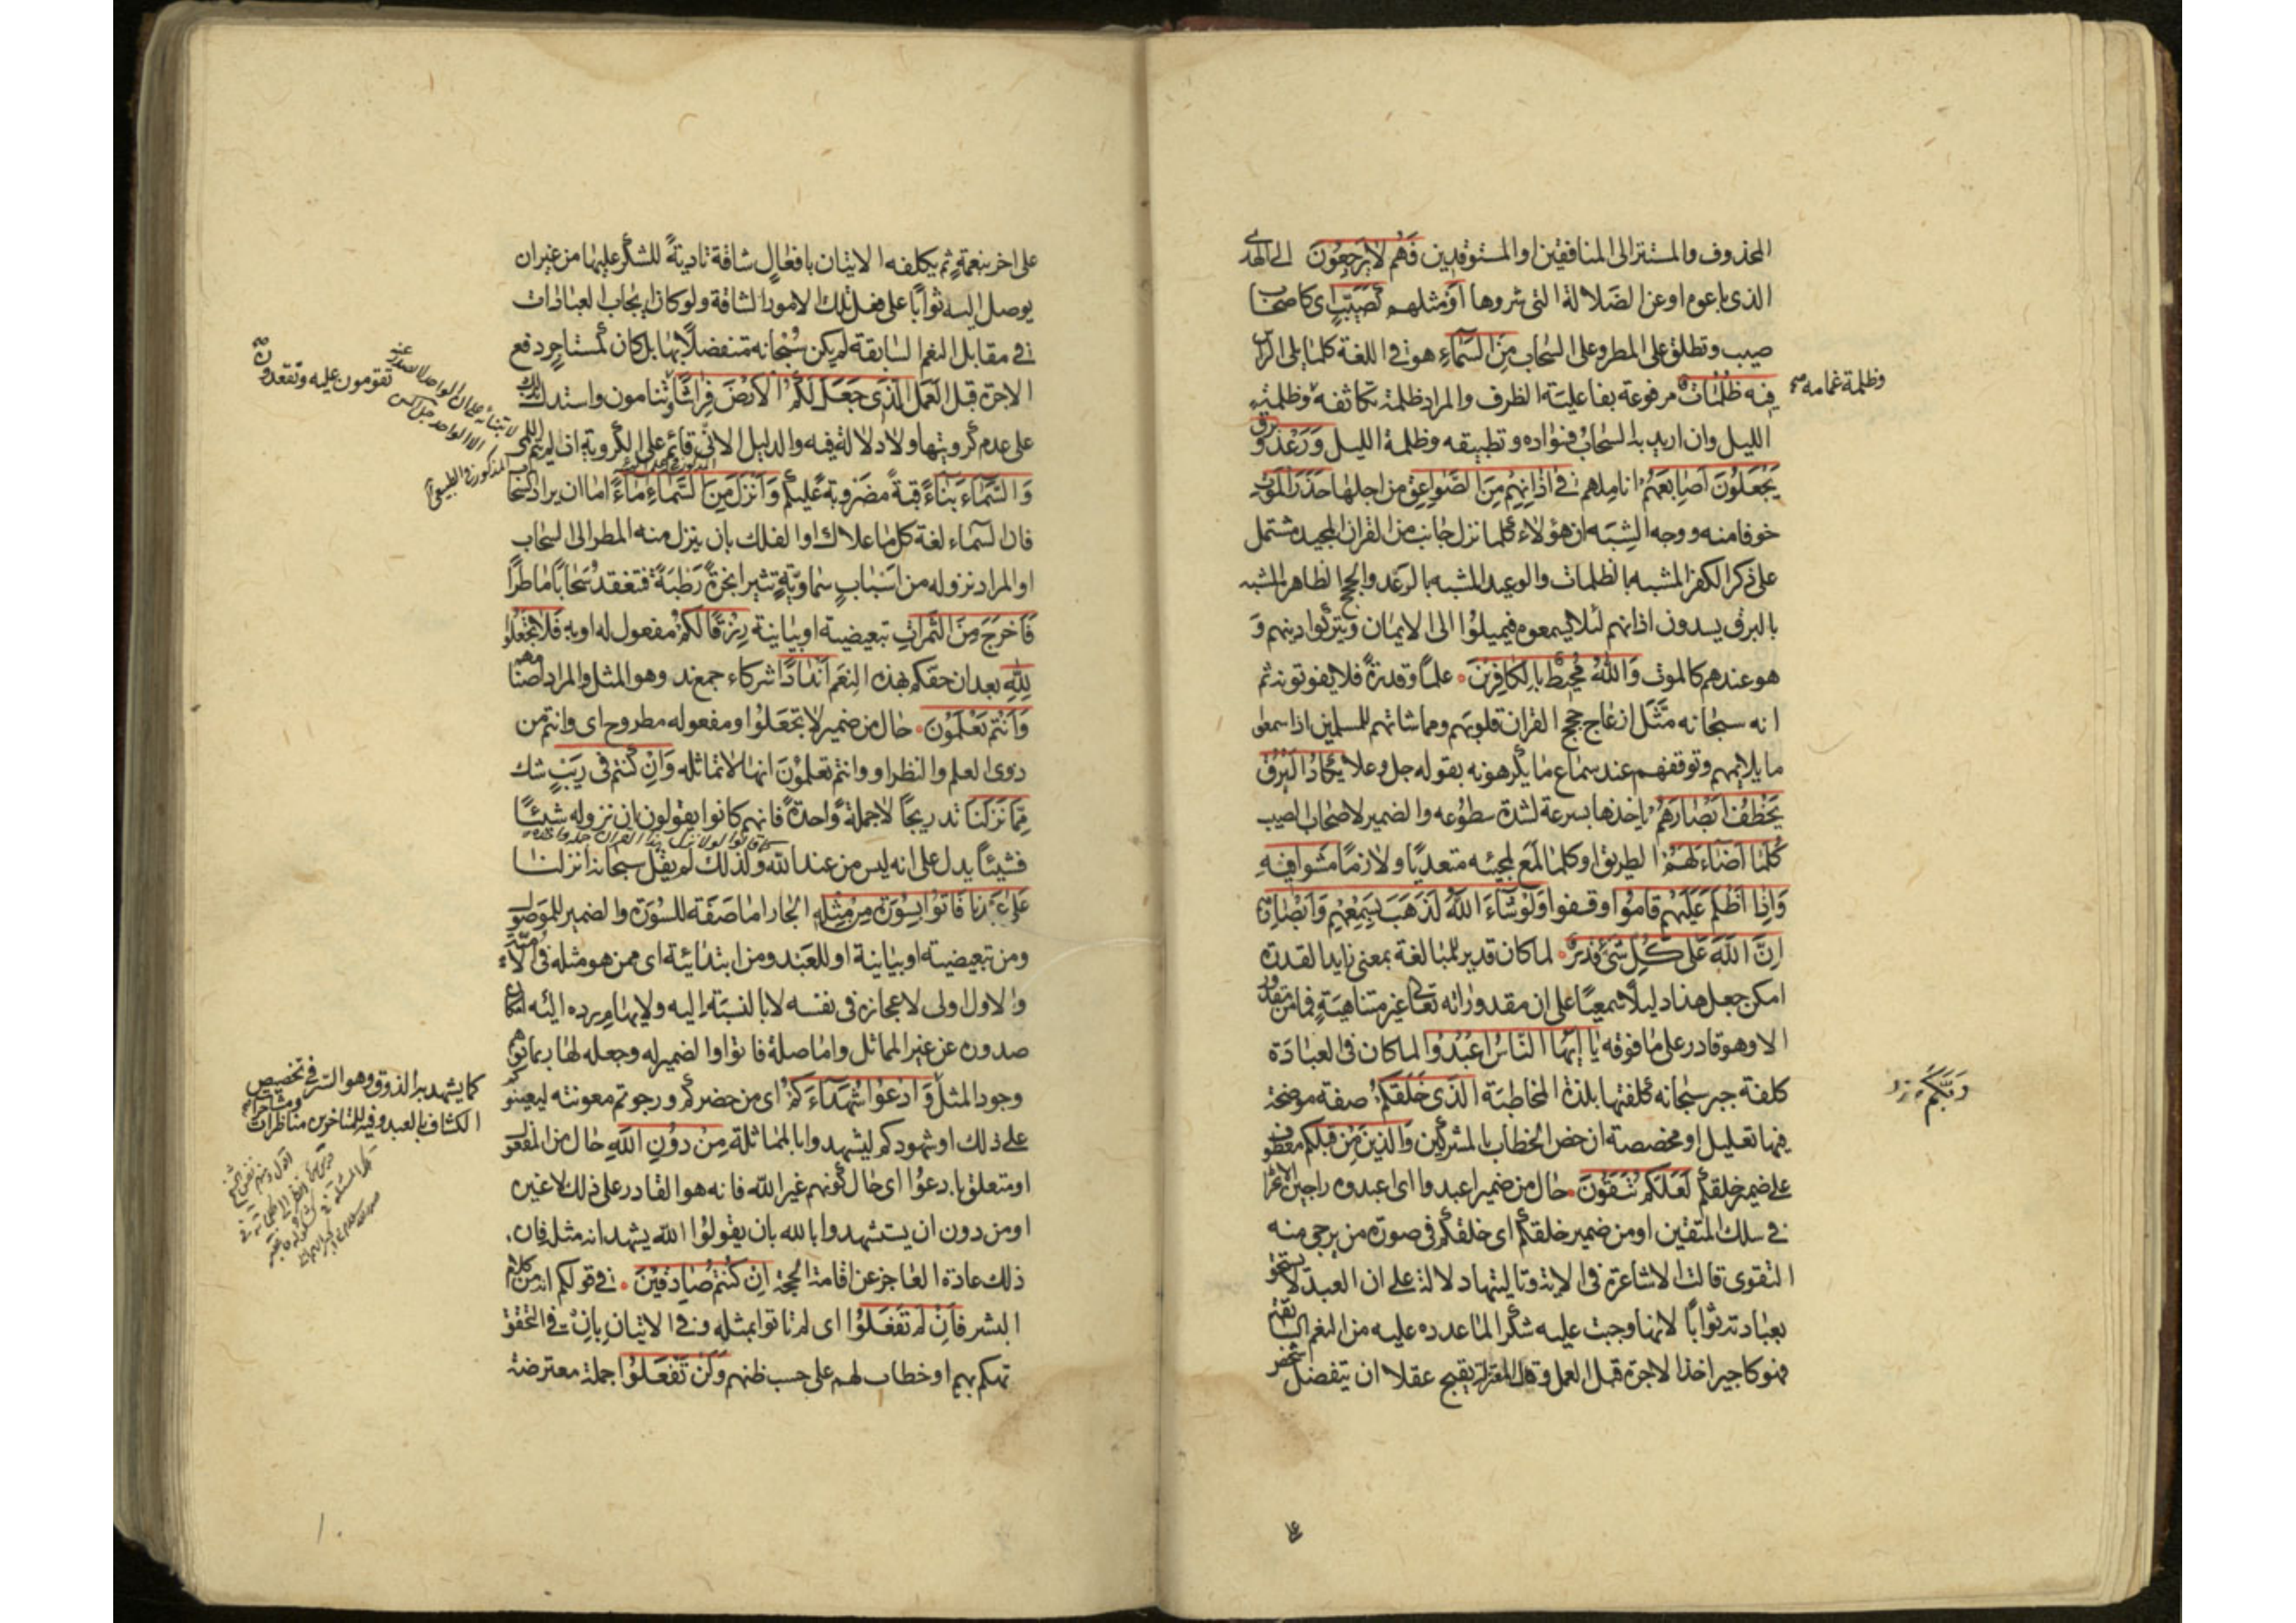 المحذوف والمستتر الى المنافقين او المستوقدين فَهُم لا يَرجِعُونَ الى الهدى
الذى باعوه او عن الضلالة التى شروها اَو مثلهم كَصَيِّبٍ اى كاصحاب
صيب وتطلق على المطر وعلى السحاب مِنَ السَّمآءِ هو فى اللغة كلما يلى الراس
فِيه ظُلُمَاتٌ مرفوعة بفاعلية الظرف والمراد ظلمة تكاثفه وظلمة
وظلمة غمامه صح
الليل وان اريد به السحاب فسواده وتطبيقه وظلمة الليل وَرَعدٌ وَبرق
يَجعَلُونَ اَصابِعَهُم اناملهم فى اذانِهِم مِنَ الصَّواعِقِ من اجلها حَذَرَ المَوتِ
خوفا منه ووجه الشبه ان هؤلاء كلما نزل جانب من القران المجيد مشتمل
على ذكر الكفر المشبه بالظلمات والوعيد المشبه بالرعد والحجج الظاهر المشبه
بالبرق يسدون اذانهم لئلا يسمعوه فيميلوا الى الايمان ويتركوا دينهم وَ
هو عندهم كالموت وَاللهُ مُحيطٌ بِالكافِرينَ علمًا وقدرةً فلا يفوتونه ثم
انه سبحانه مَثَّلَ ازعاج حجج القران قلوبهم ومماشاتهم للمسلمين اذا سمعوا
ما يلايمهم وتوقفهم عند سماع ما يكرهونه بقوله جل وعلا يَكادُ البَرقُ
يَخطَفُ اَبصَارَهُم ياخذها بسرعة لشدة سطوعه والضمير لاصحاب الصيب
كُلَّما اَضآءَ لَهُم الطريق او كلما لمع لمجيئه متعديًا ولازمًا مَشَوا فِيهِ
وَاِذا اَظلَمَ عَلَيهِم قامُوا وقفوا وَلَو شآءَ اللهُ لَذَهَبَ بِسَمعِهِم وَاَبصارِهِم
اِنَّ اللهَ عَلى كُلِّ شَىءٍ قَديرٌ لما كان قدير للمبالغة بمعنى زايد القدرة
امكن جعل هذا دليلًا سمعيًا على ان مقدوراته تعالى غير متناهية فما من مقدور
الا وهو قادر على ما فوقه يا اَيُّها النّاسُ اعبُدُوا لما كان فى العبادة
كلفة جبر سبحانه كلفتها بلذة المخاطبة الَّذى خَلَقَكُم صفة موضحة
رَبَّكُم
فيها تعليل او مخصصة ان خص الخطاب بالمشركين وَالَّذينَ مِن قَبلِكُم معطوف
على ضمير خلقكم لَعَلَّكُم تَتَّقُونَ حال من ضمير اعبدوا اى اعبدوه راجين الانخراط
فى سلك المتقين او من ضمير خلقكم اى خلقكم فى صورة من يرجى منه
التقوى قالت الاشاعرة فى الاية وتاليتها دلالة على ان العبد لا يستحق
بعبادته ثوابًا لانها وجبت عليه شكرا لما عدده عليه من النعم السابقة
فهو كاجير اخذ الاجرة قبل العمل وقال المعتزلة يقبح عقلا ان يتفضل شخص
على اخر بنعمةٍ ثم يكلفه الاتيان بافعالٍ شاقة تاديةً للشكر عليها من غير ان
يوصل اليه ثوابًا على فعل تلك الامور الشاقة ولو كان ايجاب العبادات
فى مقابل النعم السابقة لم يكن سبحانه متفضلًا بها بل كان كمستاجر دفع
الاجرة قبل العمل الَّذى جَعَلَ لَكُمُ الاَرضَ فِراشًا تنامون واستدل بذلك
تقومون عليه وتقعدون
على عدم كرويتها ولا دلالة فيه والدليل الانى قائم على الكروية اذ لم يتم اللمى
وَالسَّمآءَ بِناءً قبةً مضروبةً عليكم وَاَنزَلَ مِنَ السَّمآءِ مآءً اما ان يراد السحاب
فان السماء لغة كل ما علاك او الفلك بان ينزل منه المطر الى السحاب
او المراد نزوله من اسبابٍ سماويّةٍ تثير ابخرةً رَطبَةً فتنعقد سَحابًا ماطرًا
فَاَخرَجَ مِنَ الثَّمَراتِ تبعيضية او بيانية رِزقًا لَكُم مفعول له او به فَلا تَجعَلُوا
لِلّهِ بعد ان حقكم بهذه النعم اَندادًا شركاء جمع ند وهو المثل والمراد اصنامهم
وَاَنتُم تَعلَمُونَ حال من ضمير لا تجعلوا ومفعوله مطروح اى وانتم من
ذوى العلم والنظر او وانتم تعلمون انها لا تماثله وَاِن كُنتُم فى رَيبٍ شك
مِمّا نَزَّلنا تدريجًا لا جملةً واحدةً فانهم كانوا يقولون ان نزوله شيئًا
كما قالوا لولا نزل هذا القران جملة واحدة
فشيئًا يدل على انه ليس من عند الله ولذلك لم يقل سبحانه انزلنا
عَلى عَبدِنا فَاتُوا بِسُورَةٍ مِن مِثلِهِ الجار اما صفة للسورة والضمير للموصول
ومن تبعيضية او بيانية او للعبد ومن ابتدائية اى ممن هو مثله فى الامية
والاول اولى لاعجازه فى نفسه لا بالنسبة اليه ولايهام رده اليه امكان
صدوره عن غير المماثل واما صلة فاتوا والضمير له وجعله لها ربما توهم
وجود المثل وَادعُوا شُهَدآءَكُم اى من حضركم ورجوتم معونته ليعينوكم
كما يشهد به الذوق وهو السر فى تخصيص
الكشاف بالعبد وفيه للمتاخرين مناظرات
على ذلك او شهودكم ليشهدوا بالمماثلة مِن دُونِ اللهِ حال من المفعول
او متعلق بادعوا اى حال كونهم غير الله فانه هو القادر على ذلك لا غيره
او من دون ان يستشهدوا بالله بان يقولوا الله يشهد انه مثل فان
ذلك عادة العاجز عن اقامة الحجة اِن كُنتُم صادِقينَ فى قولكم انه من كلام
البشر فَاِن لَم تَفعَلُوا اى لم تاتوا بمثله وفى الاتيان بان فى التحقق
تهكم بهم او خطاب لهم على حسب ظنهم وَلَن تَفعَلُوا جملة معترضة